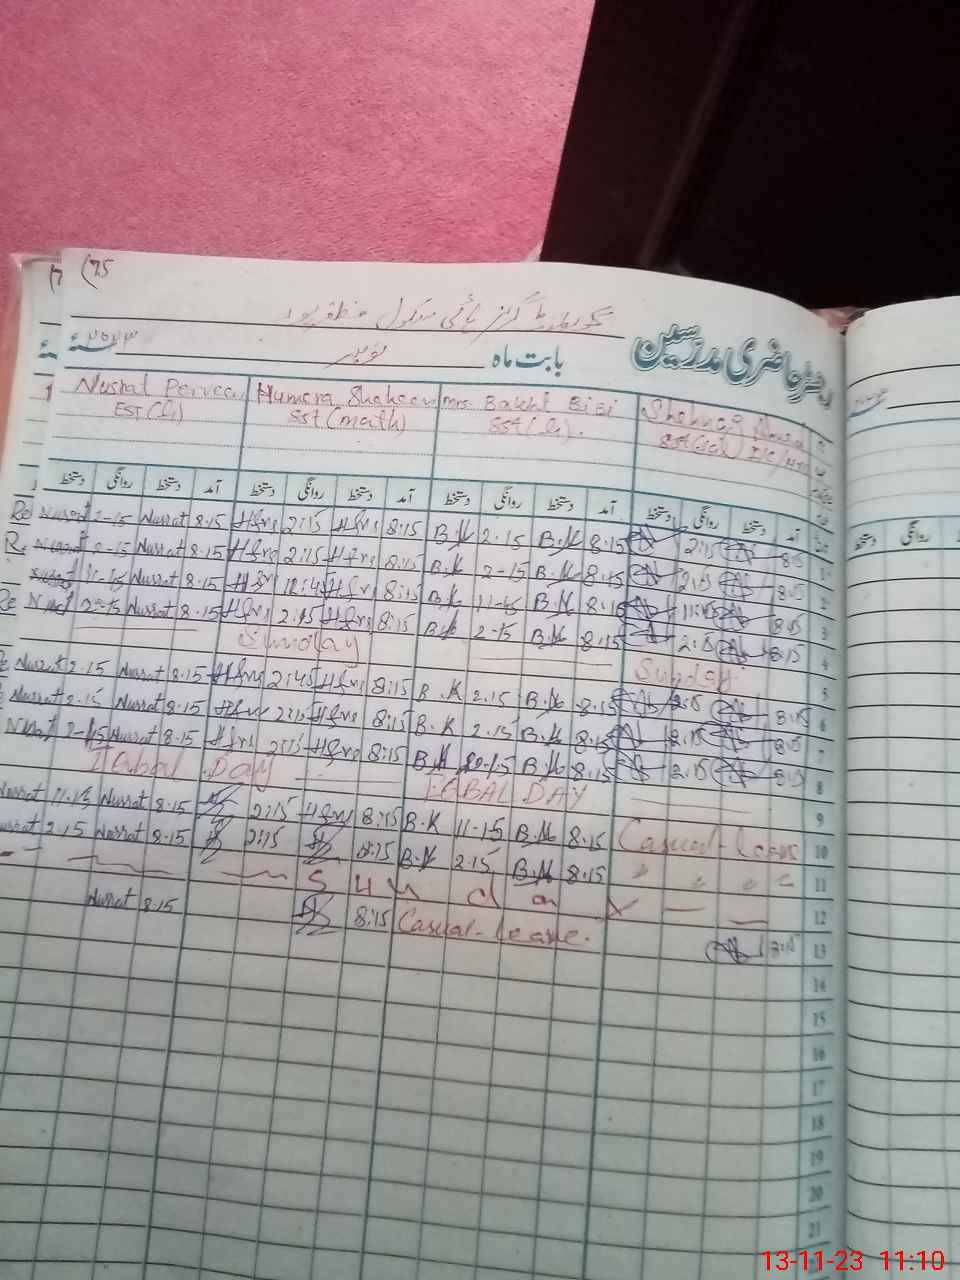 (75
گورنمنٹ گرلز ہائی سکول مظفرپور
حاضری مدرسین بابت ماہ نومبر ۲۰۲۳
Nusrat Perveen Humera Shaheen Mrs. Bakht Bibi Shehnaz
EST SST (Math) SST
دستخط روانگی دستخط آمد دستخط روانگی دستخط آمد دستخط روانگی دستخط آمد دستخط روانگی دستخط آمد دستخط روانگی
Nusrat 2-15 Nusrat 8.15 Hfrs 2:15 Hfrs 8:15 B.K 2.15 B.K 8.15 2:15 8:15 1
Nusrat 2-15 Nusrat 8.15 Hfrs 2:15 Hfrs 8:15 B.K 2-15 B.K 8.15 2:15 8:15 2
Nusrat Nusrat 8.15 Hfrs 12:45 Hfrs 8:15 B.K 11-15 B.K 8.15 8:15 3
Nusrat 2-15 Nusrat 8.15 Hfrs 2:15 Hfrs 8:15 B.K 2-15 B.K 8.15 2:15 8:15 4
Sunday Sunday 5
Nusrat 2.15 Nusrat 8.15 Hfrs 2:45 Hfrs 8:15 B.K 2.15 B.K 8.15 2:15 8:15 6
Nusrat 2.15 Nusrat 8.15 Hfrs 2:15 Hfrs 8:15 B.K 2.15 B.K 8.15 2:15 8:15 7
Nusrat 2-15 Nusrat 8.15 Hfrs 2:15 Hfrs 8:15 B.K 2-15 B.K 8.15 2:15 8:15 8
Iqbal Day EQBAL DAY 9
Nusrat 11.15 Nusrat 8.15 2:15 Hfrs 8:15 B.K 11-15 B.K 8.15 Casual-leave 10
Nusrat 2.15 Nusrat 8.15 2:15 8:15 B.K 2.15 B.K 8.15 " " " " 11
Sunday 12
Nusrat 8.15 8:15 Casual-leave. 8:15 13
14
15
16
17
18
19
20
21
13-11-23 11:10